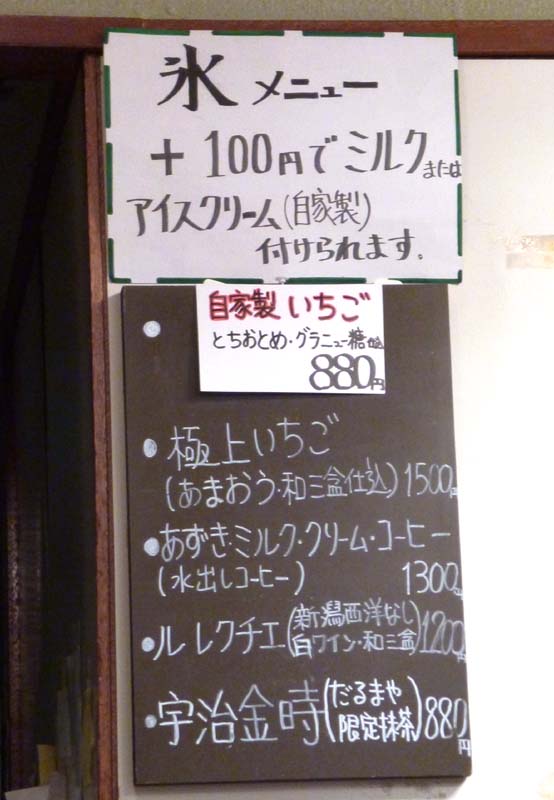 氷 メニュー
+ 100円でミルクまたは
アイスクリーム(自家製)
付けられます。
自家製 いちご
とちおとめ・グラニュー糖
880円
・極上いちご
(あまおう・和三盆仕込) 1500円
・あずき・ミルク・クリーム・コーヒー
(水出しコーヒー) 1300円
・ル レクチエ (新潟西洋なし
白ワイン・和三盆) 1200円
・宇治金時 (だるまや
限定抹茶) 880円